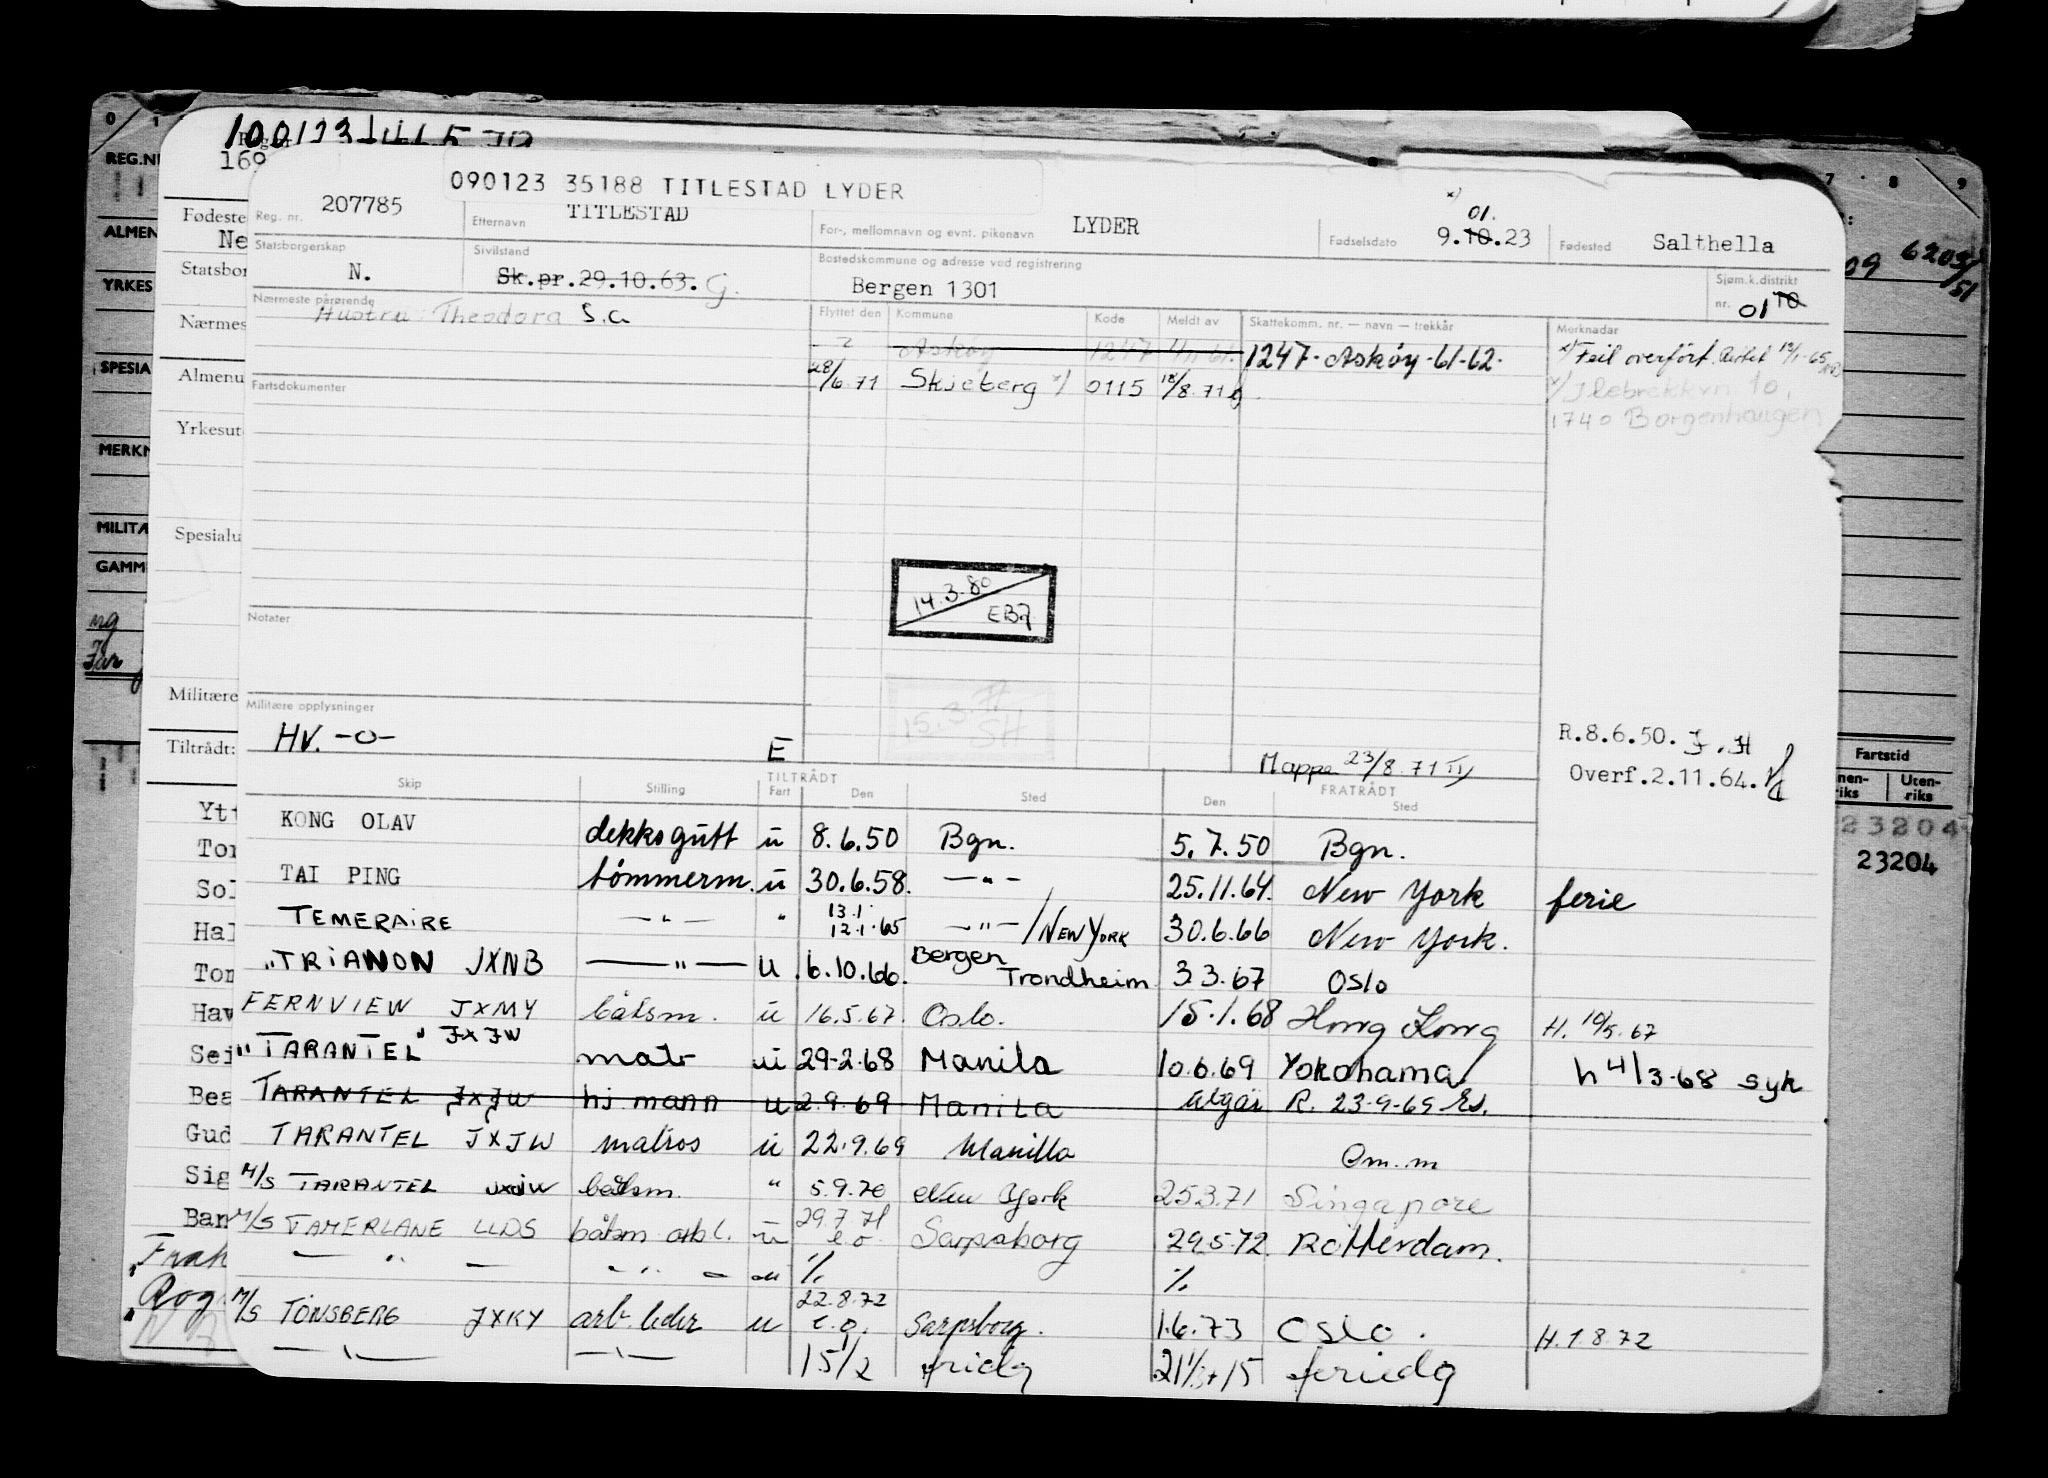 090123 35188 TITLESTAD LYDER
Reg. nr. 207785
Etternavn TITLESTAD
For-, mellomnavn og evnt. pikenavn LYDER
Fødselsdato 9.10.23 x) 01.
Fødested Salthella
Statsborgerskap N.
Sivilstand Sk.pr.29.10.63. G.
Bostedskommune og adresse ved registrering Bergen 1301
Sjøm.k.distrikt nr. 01 10
Nærmeste pårørende Hustru: Theodora S.a
Flyttet den Kommune Kode Meldt av Skattekomm. nr. — navn — trekkår Merknadar
Askøy 1247 1247 - Askøy - 61-62.
x) Feil overført.
28/6.71 Skjeberg x) 0115 18/8.71
1740 Borgenhaugen
Fartsdokumenter
14.3.80
Notater
Militære opplysninger
15.3.
SH
HV. -o-
E
Mappe 23/8.71
R.8.6.50.
Overf.2.11.64.
Skip Stilling TILTRÅDT Fart Den Sted FRATRÅDT Den Sted
KONG OLAV dekksgutt u 8.6.50 Bgn. 5.7.50 Bgn.
TAI PING tømmerm. u 30.6.58. -"- 25.11.64. New York ferie
TEMERAIRE -"- " 13.1 12.1.65 -"-/NEW YORK 30.6.66 New York.
"TRIANON JXNB -"- u 6.10.66. Bergen Trondheim 3.3.67 Oslo
FERNVIEW JXMY båtsm. u 16.5.67. Oslo. 15.1.68 Hong Kong H. 10/5.67
"TARANTEL" JXJW matr ui 29-2.68 Manila 10.6.69 Yokohama h 4/3-68 syk
TARANTEL JXJW hj. mann u 2.9.69 Manila Utgår R. 23-9-69
TARANTEL JXJW matros u 22.9.69 Manilla Om. m
M/S TARANTEL JXJW båtsm. " 5.9.70 New York 25.3.71 Singapore
M/S TAMERLANE LLDS båtsm arb l. u 29.7.71 e.o. Sarpsborg 29.5.72 Rotterdam.
M/S TØNSBERG JXKY arb. leder u 22.8.72 e.o. Sarpsborg. 1.6.73 OSLO. H.1872
15/2
Fødeste
Ne
Statsbor
Nærmes
Almenu
Yrkesut
Spesialu
Militære
Tiltrådt:
Hal
Hav
Sei
Bea
Gud
Sig
Ban
Rog
REG.N
ALMEN
YRKES
SPESIA
MERKN
MILITÆ
GAMM
Fartstid
Uten-
riks
23204
23204